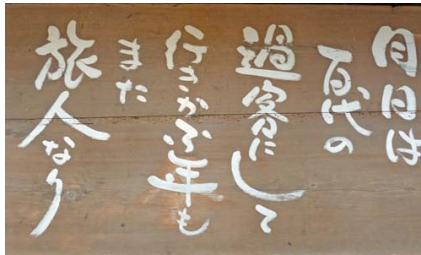 月日は
百代の
過客にして
行きかふ年も
また
旅人なり